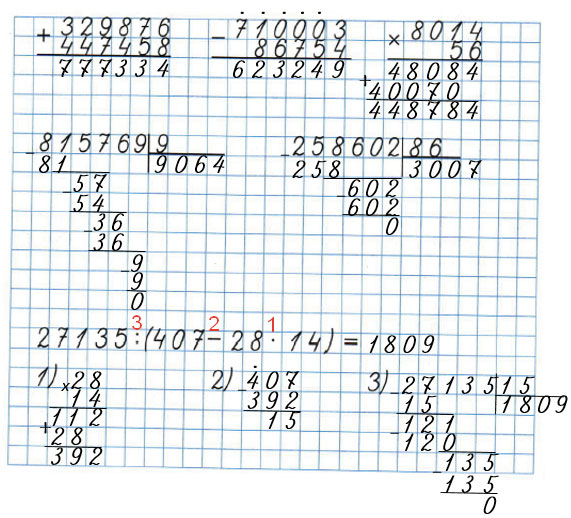 + 329876
447458
777334
− 710003
86754
623249
× 8014
56
+ 48084
40070
448784
− 815769 | 9
81 | 90641
− 57
54
− 36
36
− 9
9
0
− 258602 | 86
258 | 3007
− 602
602
0
3 2 1
27135 : (407 − 28 · 14) = 1809
1) × 28
14
+ 112
28
392
2) − 407
392
15
3) − 27135 | 15
15 | 1809
− 121
120
− 135
135
0